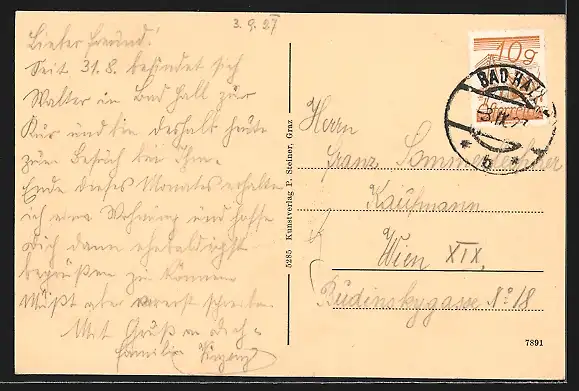 3. 9. 27
Lieber Freund!
Seit 31.8. befindet sich
Walter in Bad Hall zur
Kur und bin deshalb heute
zum Besuch bei ihm.
Ende dieses Monates erhalte
ich eine Wohnung und hoffe
dich dann ehebaldigst
begrüßen zu können.
Mußt aber vorerst schreiben.
Mit Gruß an dich
Familie
5285 Kunstverlag P. Steiner, Graz
10g
BAD HALL
Österreich
3.IX.27
* b *
Herrn
Franz Sommerlechner
Kaufmann
Wien XIX,
Budinskygasse No 18
7891